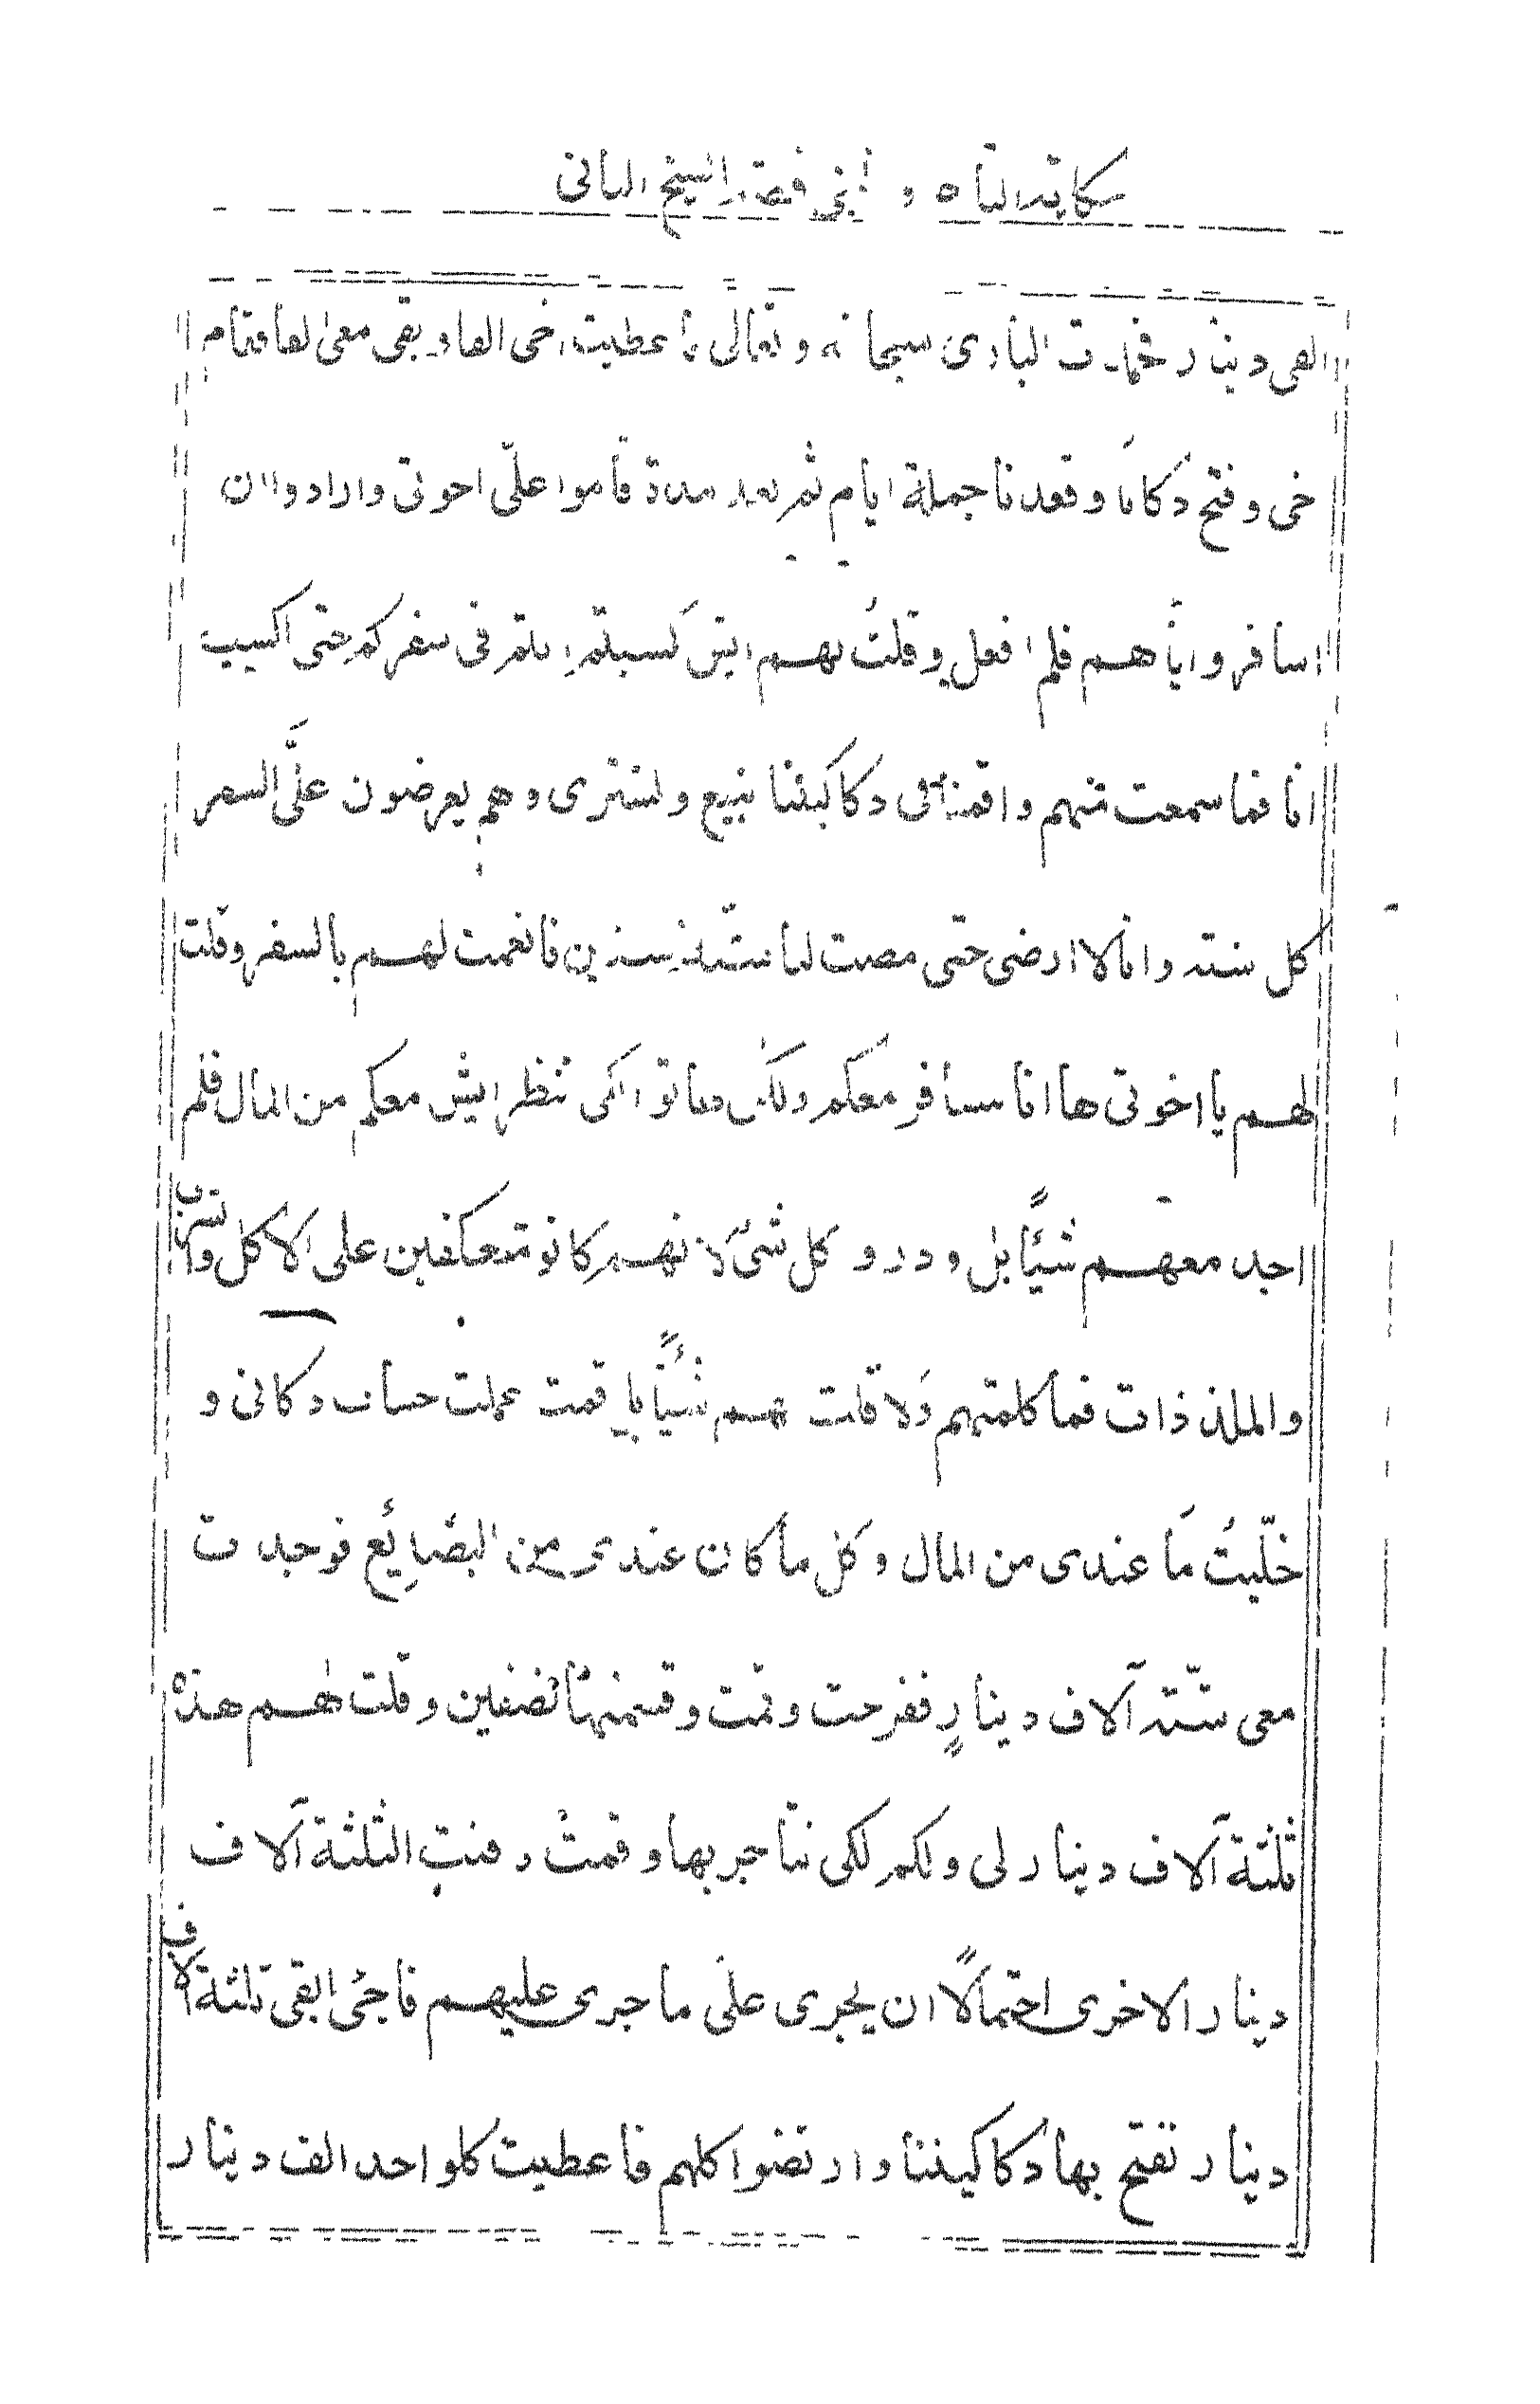 حكاية التاجر و في قصة الشيخ الثاني
الفى دينار فحمدت البارى سبحانه وتعالى فاعطيت اخى الفا وبقى معى الفا فقام
اخى وفتح دكانا وقعدنا جملة ايام ثم بعد مدة قاموا علّى اخوتى وارادوا ان
اسافر واياهم فلم افعل وقلتُ لهم ايش كسبتم انتم فى سفركم حتى اكسب
انا فما سمعت منهم واقمنا فى دكاكيننا نبيع ونشترى وهم يعرضون علىَّ السفر
كل سنة وانا لا ارضى حتى مضت لنا ستة سنين فانعمت لهم بالسفر وقلت
لهم يا اخوتى ها انا مسافر معكم ولكن هاتوا لكى ننظر ايش معكم من المال فلم
اجد معهم شيئًا بل ودروا كل شئ لانهم كانو متعكفين على الاكل والشرب
والملذذات فما كلمتهم ولا قلت لهم شيئًا بل قمت عملت حساب دكانى و
خلّيتُ ما عندى من المال وكل ما كان عندى من البضائع فوجدت
معى ستّة آلاف دينارٍ ففرحت وقمت وقسمتها نصفين وقلت لهم هذه
ثلثة آلاف دينار لى ولكم لكى نتاجر بها وقمت دفنت الثلثة آلاف
دينار الاخرى احتمالًا ان يجرى على ما جرى عليهم فاجئ القى ثلثة الاف
دينار نفتح بها دكاكيننا وارتضوا كلهم فاعطيت كلواحد الف دينار